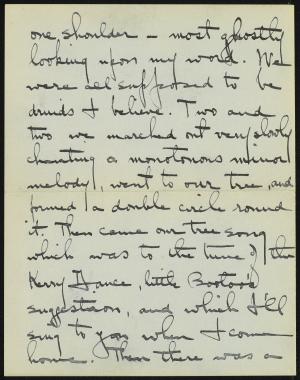 one shoulder - most ghostly
looking upon my word. We
were all supposed to be
druids I believe. Two and
two we marched out very slowly
chanting a monotonous minor
melody, went to our tree, and
formed a double circle round
it. Then came our tree song
which was to the tune of the
Kerry Dance, little
suggestion, and which I'll
sing to you when I come
home. Then there was a